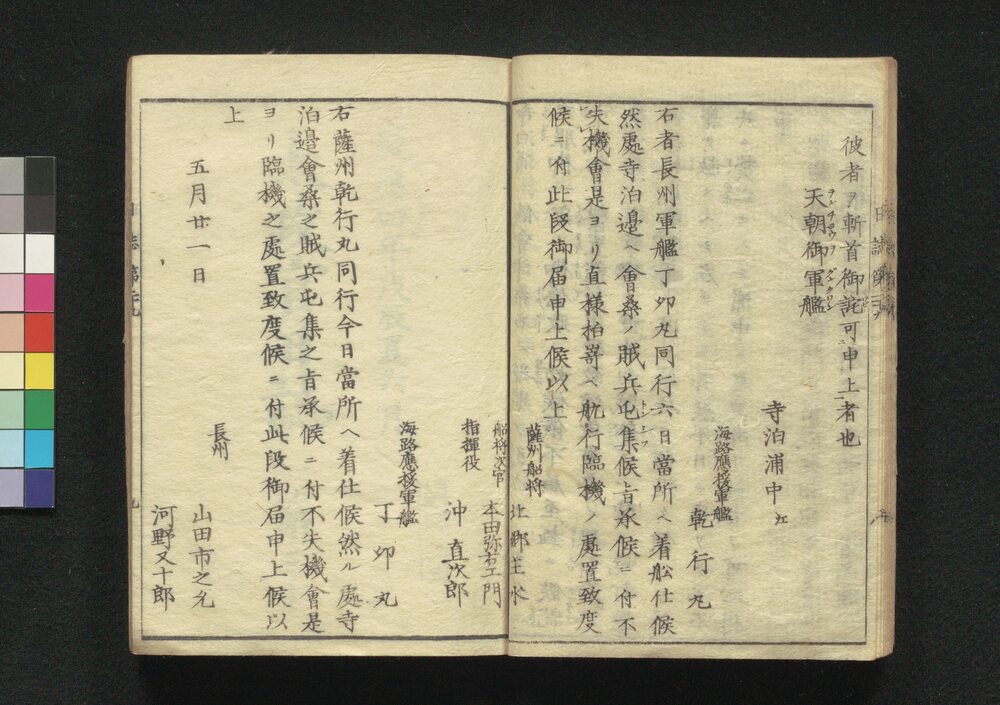 彼者ヲ斬首御詫可申上者也
天朝御軍艦
寺泊浦中江
海路應援軍艦
乾行丸
右者長州軍艦丁卯丸同行六日當所ヘ着舩仕候
然處寺泊邊ヘ會桑ノ賊兵屯集候旨承候ニ付不
失機會是ヨリ直様柏嵜ヘ航行臨機ノ處置致度
候ニ付此段御届申上候以上
薩州船将
北郷主水
船将次官
本田弥右エ門
指揮役
沖直次郎
海路應援軍艦
丁卯丸
右薩州乾行丸同行今日當所ヘ着仕候然ル處寺
泊邊會桑之賊兵屯集之旨承候ニ付不失機會是
ヨリ臨機之處置致度候ニ付此段御届申上候以
上
五月廿一日
長州
山田市之允
河野又十郎